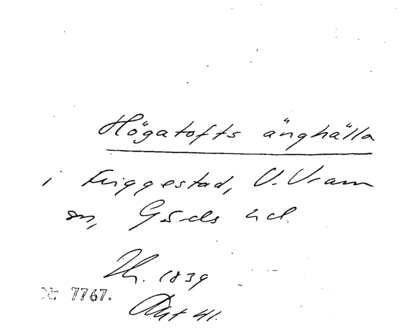 Högatofts änghälla
i Friggestad, V. Vram
sn, Gärds hd.
Th. 1839
Nr 7767.
Akt 41.